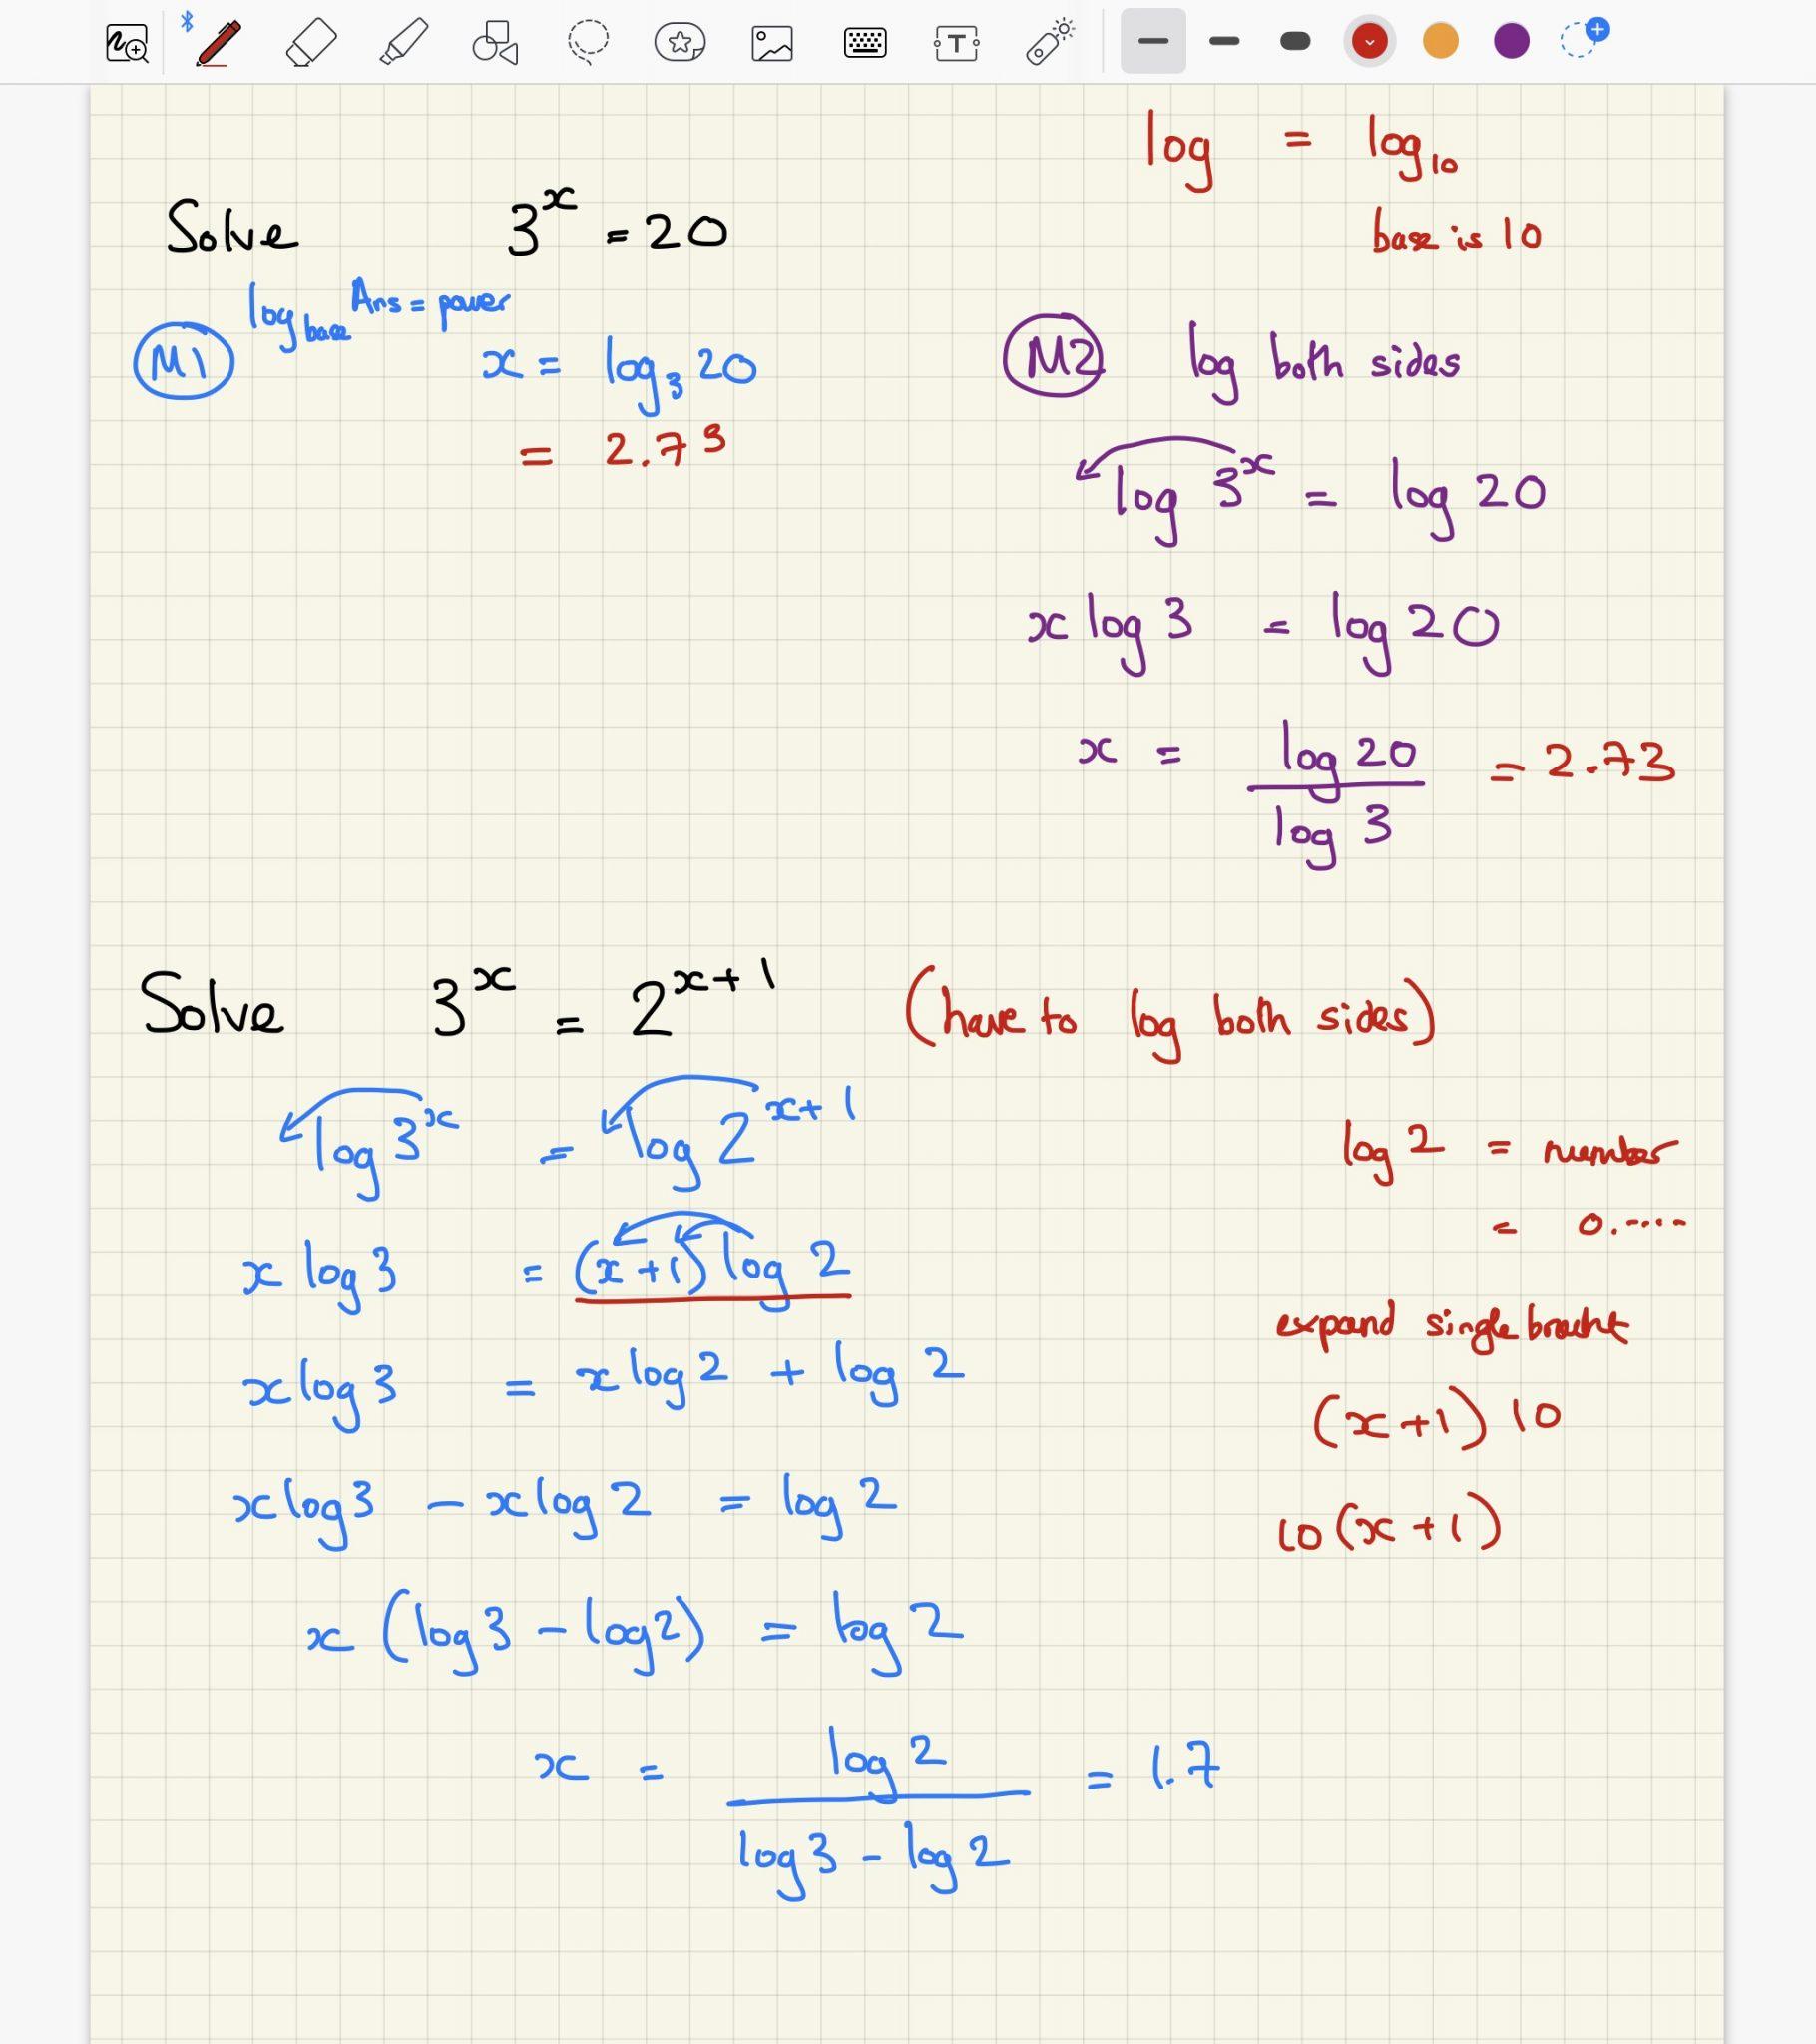 log = log₁₀
base is 10
Solve 3ˣ = 20
log base Ans = power
M1
x = log₃ 20
= 2.73
M2 log both sides
log 3ˣ = log 20
x log 3 = log 20
x = log 20 / log 3 = 2.73
Solve 3ˣ = 2ˣ⁺¹ (have to log both sides)
log 3ˣ = log 2ˣ⁺¹
x log 3 = (x + 1) log 2
x log 3 = x log 2 + log 2
x log 3 - x log 2 = log 2
x (log 3 - log 2) = log 2
x = log 2 / log 3 - log 2 = 1.7
log 2 = number
= 0.·····
expand single bracket
(x + 1) 10
10 (x + 1)